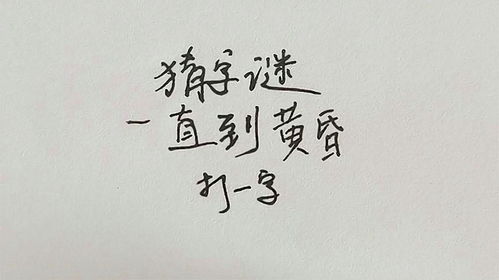 猜字谜
一直到黄昏
打一字